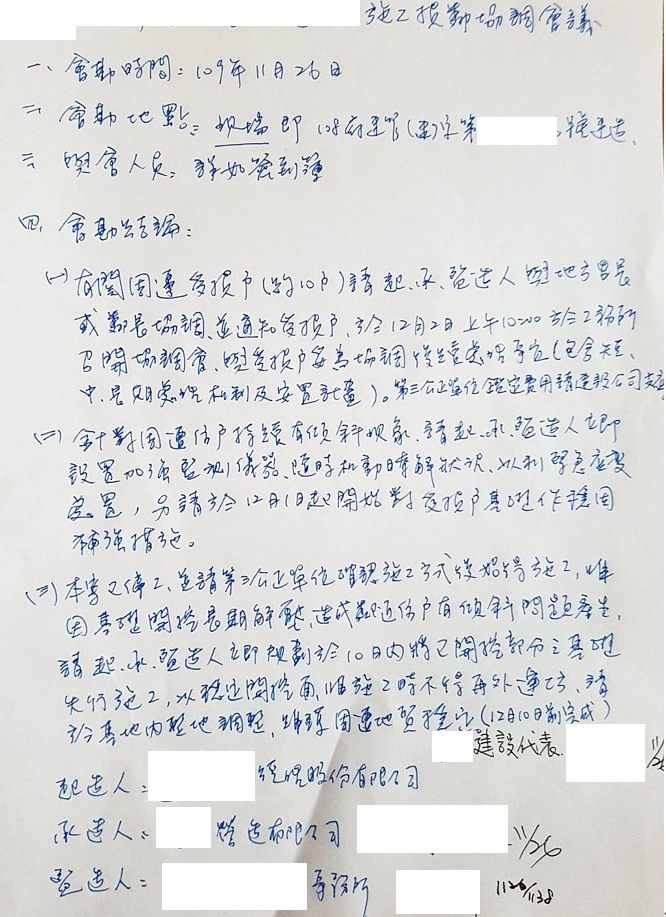 施工損鄰協調會議
一、會勘時間：109年11月26日
二、會勘地點：現場即108府建管(建)字第 號建造.
三、與會人員：詳如簽到簿
四、會勘結論：
(一)有關周遭受損戶(約10戶)請起、承、監造人與地方里長
或鄰長協調,並通知受損戶,於12月2日上午10:00於工務所
召開協調會,與受損戶妥為協調後續處理事宜(包含短、
中、長期處理機制及安置計畫)。第三公正單位鑑定費用請建設公司支應
(二)針對周遭住戶持續有傾斜現象,請起、承、監造人立即
設置加強監測儀器,隨時機動瞭解狀況,以利緊急應變
處置,另請於12月1日起開始對受損戶基礎作穩固
補強措施。
(三)本案已停工,並請第三公正單位確認施工方式後始得施工,惟
因基礎開挖長期解壓,造成鄰近住戶有傾斜問題產生,
請起、承、監造人立即規劃於10日內將已開挖部分之基礎
先行施工,以穩定開挖面,惟施工時不得再外運土方,請
於基地內整地調整,確保周遭地質穩定(12月10日前完成)
建設代表.
起造人： 經理股份有限公司
承造人： 營造有限公司 11/26
監造人： 事務所 1126/1138